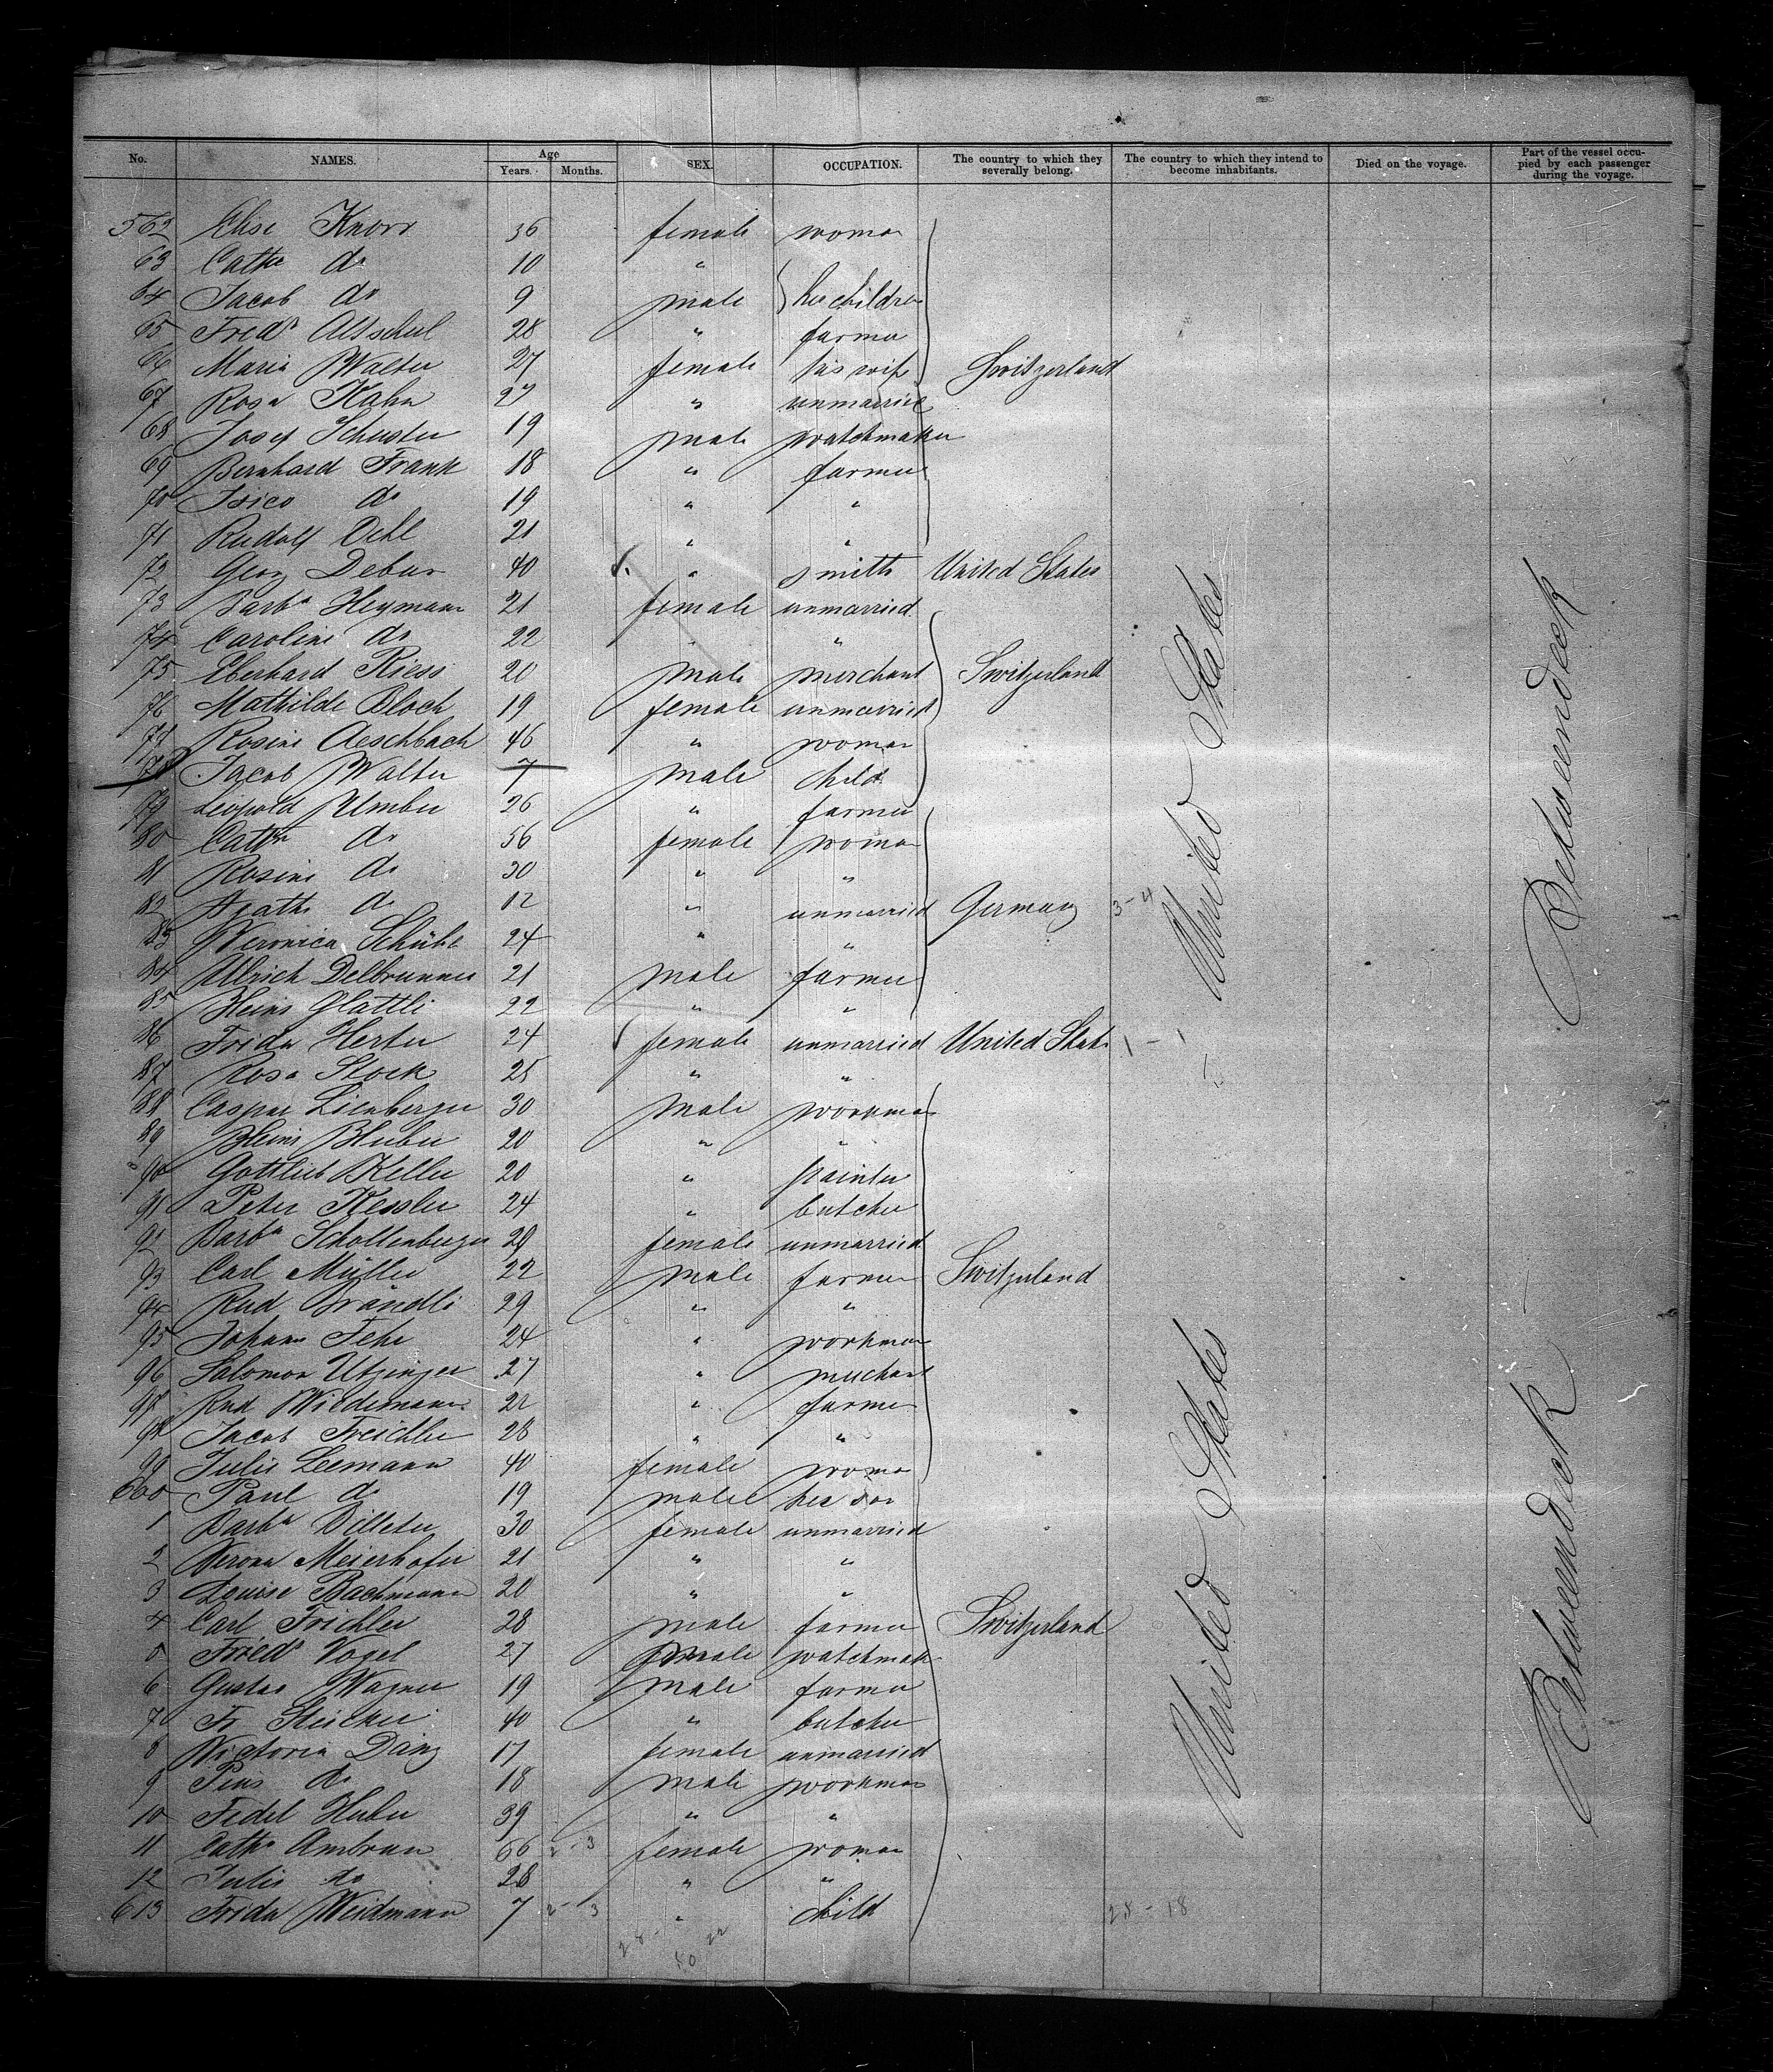 No. NAMES. Age Years. Months. SEX. OCCUPATION. The country to which they severally belong. The country to which they intend to become inhabitants. Died on the voyage. Part of the vessel occupied by each passenger during the voyage.
562 Elise Knorr 36 female woman
63 Cathe do 10 "
64 Jacob do 9 male her children
65 Fredk Altschul 28 " farmer
66 Maria Walter 27 female his wife Switzerland
67 Rosa Kahn 27 " unmarried
68 Josef Schuster 19 male watchmaker
69 Bernhard Frank 18 " farmer
70 do 19 " "
71 Rudolf 21 " "
72 Georg Debus 40 " smith United States
73 Barba Heymann 21 female unmarried
74 Caroline do 22 "
75 Eberhard Riess 20 male merchant Switzerland
76 Mathilde Bloch 19 female unmarried
77 Rosine Aeschbach 46 " woman
78 Jacob Walter 7 male child
79 Leopold Umber 26 " farmer
80 Cathe do 56 female woman
81 Rosine do 30 " "
82 Agathe do 12 " unmarried Germany 3-4
83 Veronica Schüle 24 " "
84 Ulrich Delbrunner 21 male farmer
85 Heinr Glattli 22 " "
86 Frida Herter 24 female unmarried United States 1-1
87 Rosa Stock 25 " "
88 Caspar Lienberger 30 male workman
89 Heinr Huber 20 " "
90 Gottlieb Keller 20 " painter
91 Peter Kessler 24 " butcher
92 Barba Schottenberger 29 female unmarried
93 Carl Müller 22 male farmer Switzerland
94 Rud Brändli 29 " "
95 Johann Fehr 24 " workman
96 Salomon Utzinger 27 " merchant
97 Rud Wiedemann 22 " farmer
98 Jacob Freichler 28 " "
99 Julie Leemann 40 female woman
600 Paul do 19 male her son
1 Barba Dilleter 30 female unmarried
2 Verona Meierhofer 21 " "
3 Louise Bachmann 20 " "
4 Carl Frichler 28 male farmer Switzerland
5 Friedr Vogel 27 male watchmak
6 Gustav Wagner 19 male farmer
7 Fr 40 " butcher
8 Victoria Danz 17 female unmarried
9 Pius do 18 male workman
10 Fidel Huber 39 " "
11 Cathe Ambrunn 66 2-3 female woman
12 Julie do 28 " "
613 Frida Weidmann 7 2-3 " child 28-18
United States
United States
Betweendeck
Betweendeck